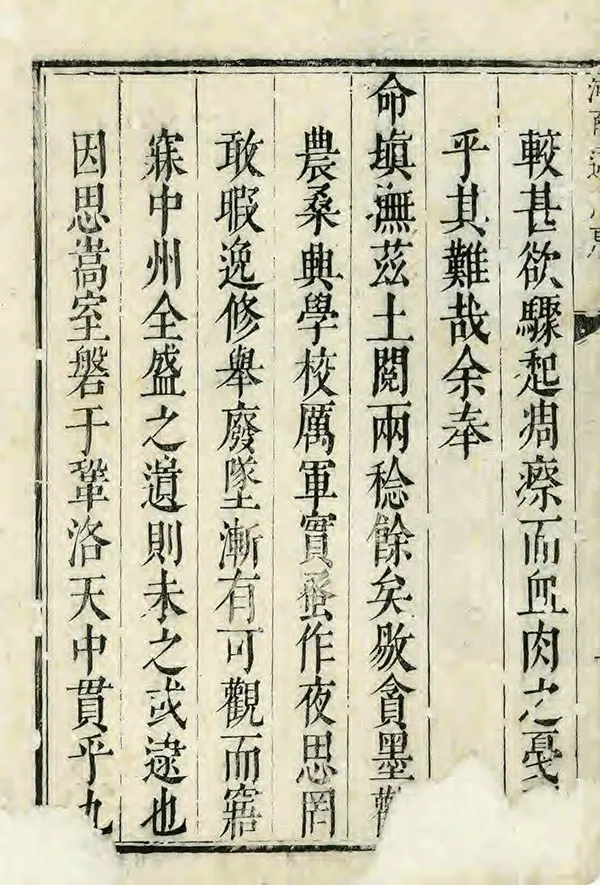 河南通
較甚欲驟起凋瘵而血肉之戞
乎其難哉余奉
命填撫茲土閱兩稔餘矣貪墨勸
農桑興學校厲軍實蚤作夜思罔
敢暇逸修舉廢墜漸有可觀而寤
寐中州全盛之遺則未之或逮也
因思嵩室磐于鞏洛天中貫乎九